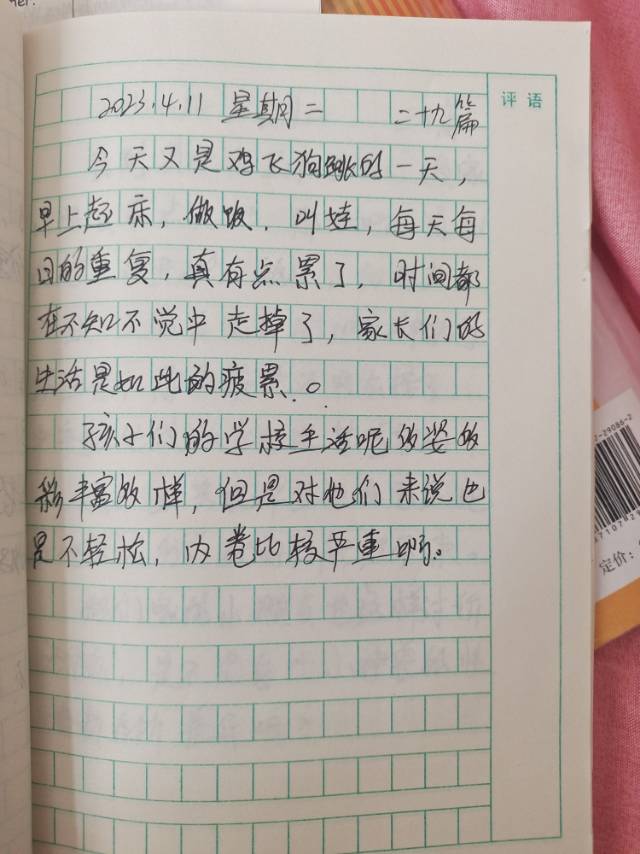 2023.4.11 星期二 二十九篇
评语
今天又是鸡飞狗跳的一天，
早上起床，做饭，叫娃，每天每
日的重复，真有点累了，时间都
在不知不觉中走掉了，家长们的
生活是如此的疲累。
孩子们的学校生活呢多姿多
彩丰富多样，但是对他们来说也
是不轻松，内卷比较严重啊。
定价：